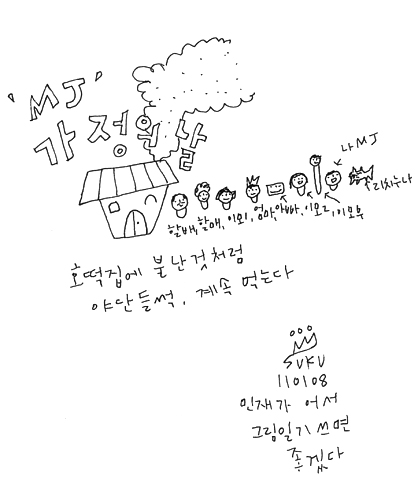 'MJ'
가정의 날
나 MJ
리치누나
할배, 할매, 이모1, 엄마, 아빠, 이모2, 이모부
호떡집에 불난것처럼
야단들썩, 계속 먹는다
SUKU
110108
민재가 어서
그림일기 쓰면
좋겠다